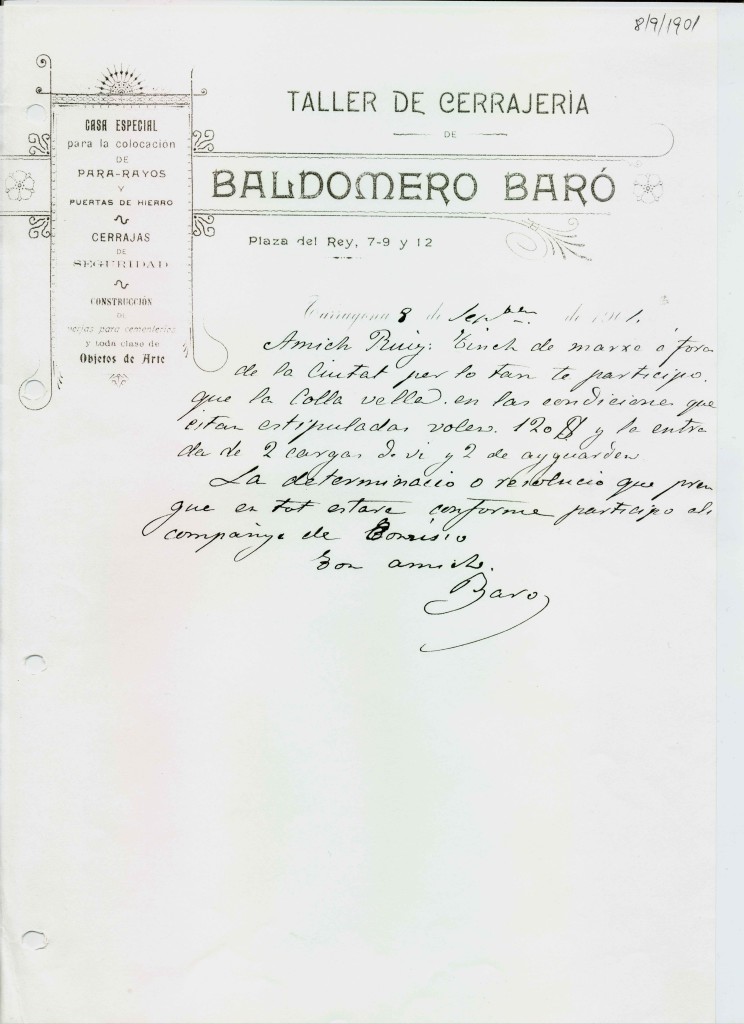 8/9/1901
CASA ESPECIAL
para la colocación
DE
PARA-RAYOS
Y
PUERTAS DE HIERRO
CERRAJAS
DE
SEGURIDAD
CONSTRUCCIÓN
DE
verjas para cementerios
y toda clase de
Objetos de Arte
TALLER DE CERRAJERÍA
DE
BALDOMERO BARÓ
Plaza del Rey, 7-9 y 12
Tarragona 8 de Sepbre de 1901.
Amich Ruiz: Tinch de marxa a fora
de la Ciutat per lo tan te participo
que la Colla vella en las condicions que
estan estipuladas volen 120 y la entra
da de 2 cargas de vi y 2 de ayguarden
La determinacio o resolucio que pren
gue en tot estare conforme participo als
companys de Comisio
Ton amich.
Baro